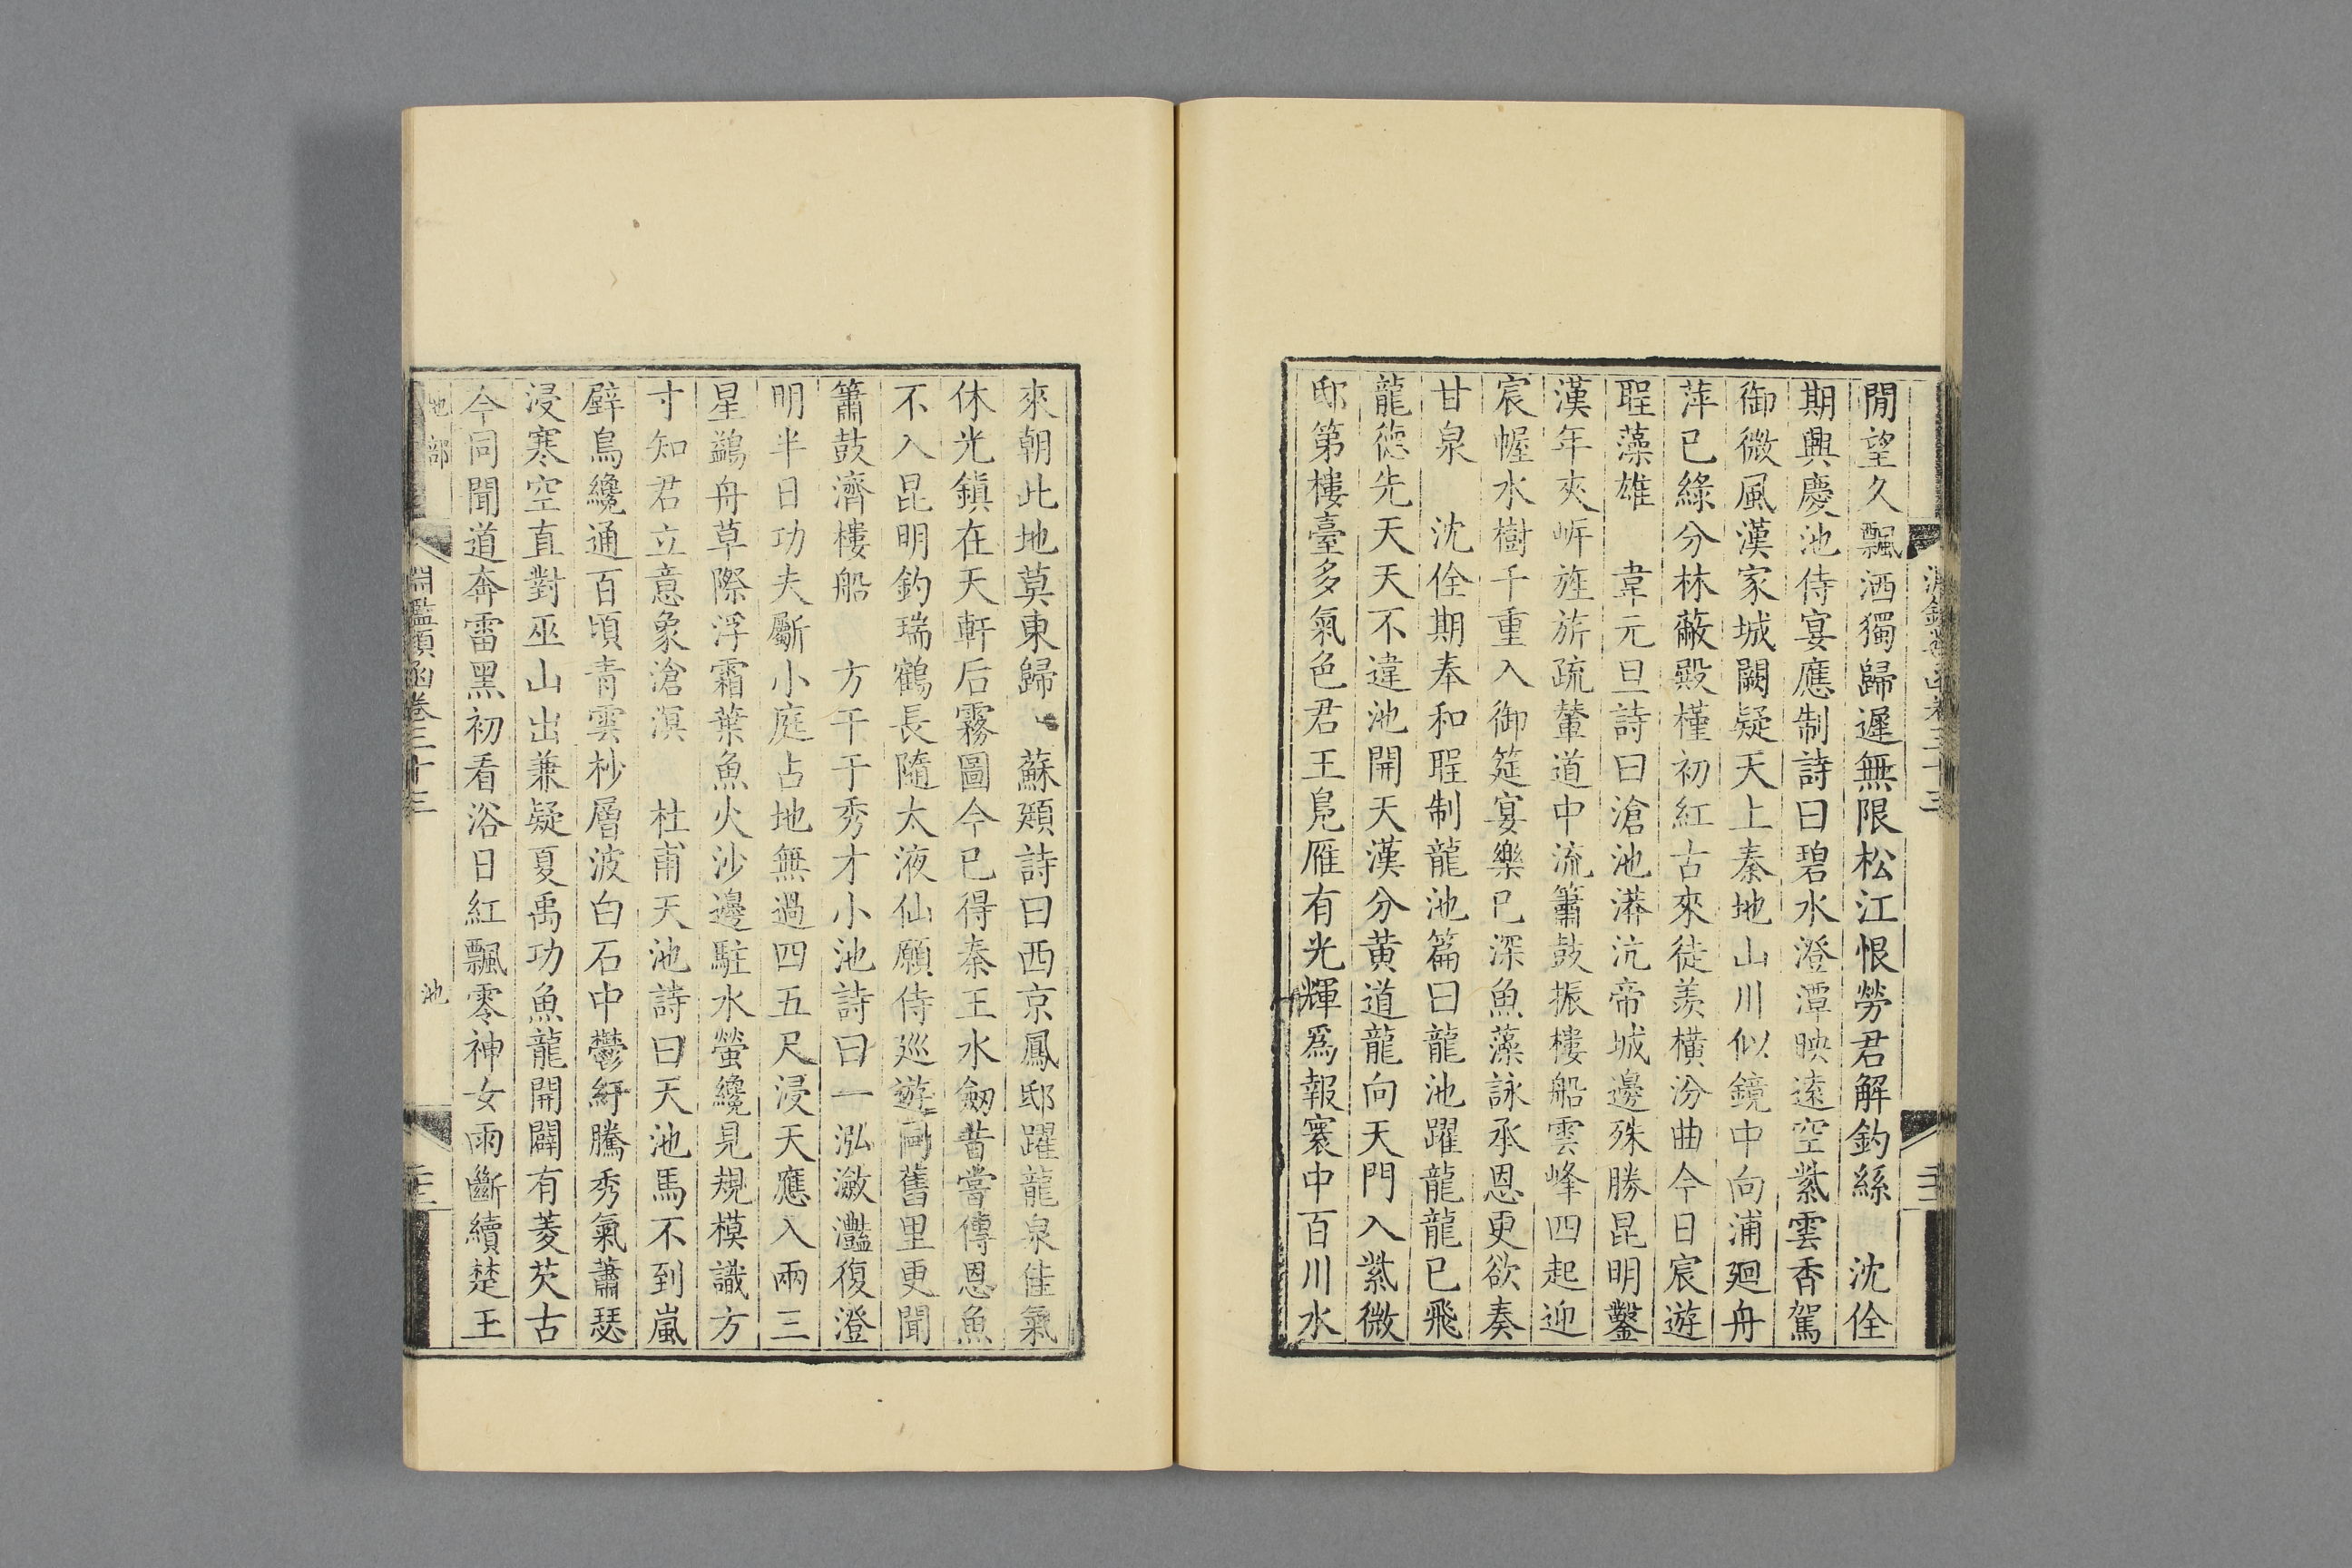 閒望久飄洒獨歸遲無限松江恨勞君解釣絲　沈佺
期興慶池侍宴應制詩曰碧水澄潭映遠空紫雲香駕
御微風漢家城闕疑天上秦地山川似鏡中向浦廻舟
萍已綠分林蔽殿槿初紅古來徒羨橫汾曲今日宸遊
聖藻雄　韋元旦詩曰滄池漭沆帝城邊殊勝昆明鑿
漢年夾岸旌旂疏輦道中流簫鼓振樓船雲峰四起迎
宸幄水樹千重入御筵宴樂已深魚藻詠承恩更欲奏
甘泉　沈佺期奉和聖制龍池篇曰龍池躍龍龍已飛
龍德先天天不違池開天漢分黃道龍向天門入紫微
邸第樓臺多氣色君王鳬雁有光輝爲報寰中百川水
來朝此地莫東歸　蘇頲詩曰西京鳳邸躍龍泉佳氣
休光鎮在天軒后霧圖今已得秦王水劒昔嘗傳恩魚
不入昆明釣瑞鶴長隨太液仙願侍巡遊同舊里更聞
簫鼓濟樓船　方干于秀才小池詩曰一泓瀲灩復澄
明半日功夫斸小庭占地無過四五尺浸天應入兩三
星鷁舟草際浮霜葉魚火沙邊駐水螢纔見規模識方
寸知君立意象滄溟　杜甫天池詩曰天池馬不到嵐
壁鳥纔通百頃青雲杪層波白石中鬱紆騰秀氣蕭瑟
浸寒空直對巫山出兼疑夏禹功魚龍開闢有菱芡古
今同聞道奔雷黑初看浴日紅飄零神女雨斷續楚王
地部
淵鑑類函卷三十三
池